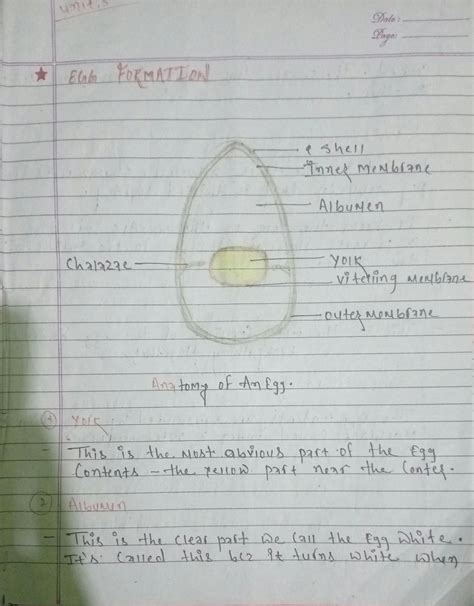 Unit.5
Date:
Page:
★ EGG FORMATION
shell
Inner membrane
Albumen
Chalazae
Yolk
Viteliing membrane
outer membrane
Anatomy of An Egg.
① Yolk
- This is the most obvious part of the Egg
Contents - the yellow part near the Center.
② Albumen
- This is the clear part we call the Egg white.
It's called this bcz it turns white when